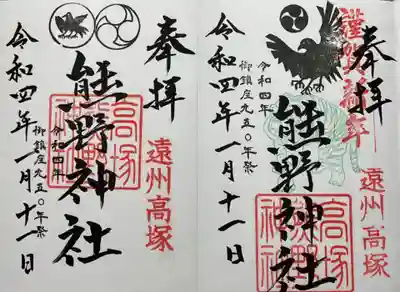 奉拝
遠州高塚
熊野神社
高塚
熊野
神社
令和四年
御鎮座九五〇年祭
令和四年一月十一日
謹賀新年
奉拝
遠州高塚
熊野神社
高塚
熊野
神社
令和四年
御鎮座九五〇年祭
令和四年一月十一日